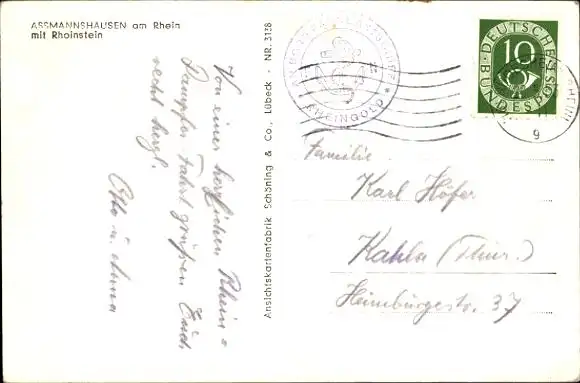 ASSMANNSHAUSEN am Rhein
mit Rheinstein
Von einer herrlichen Rhein=
Dampfer Fahrt grüßen Euch
recht herzl.
Otto u. Anna
Ansichtskartenfabrik Schöning & Co., Lübeck · NR. 3138
RHEINGOLD
DEUTSCHE
BUNDESPOST
10
g
Familie
Karl Höfer
Kahla (Thür.)
Heimbürgestr. 37